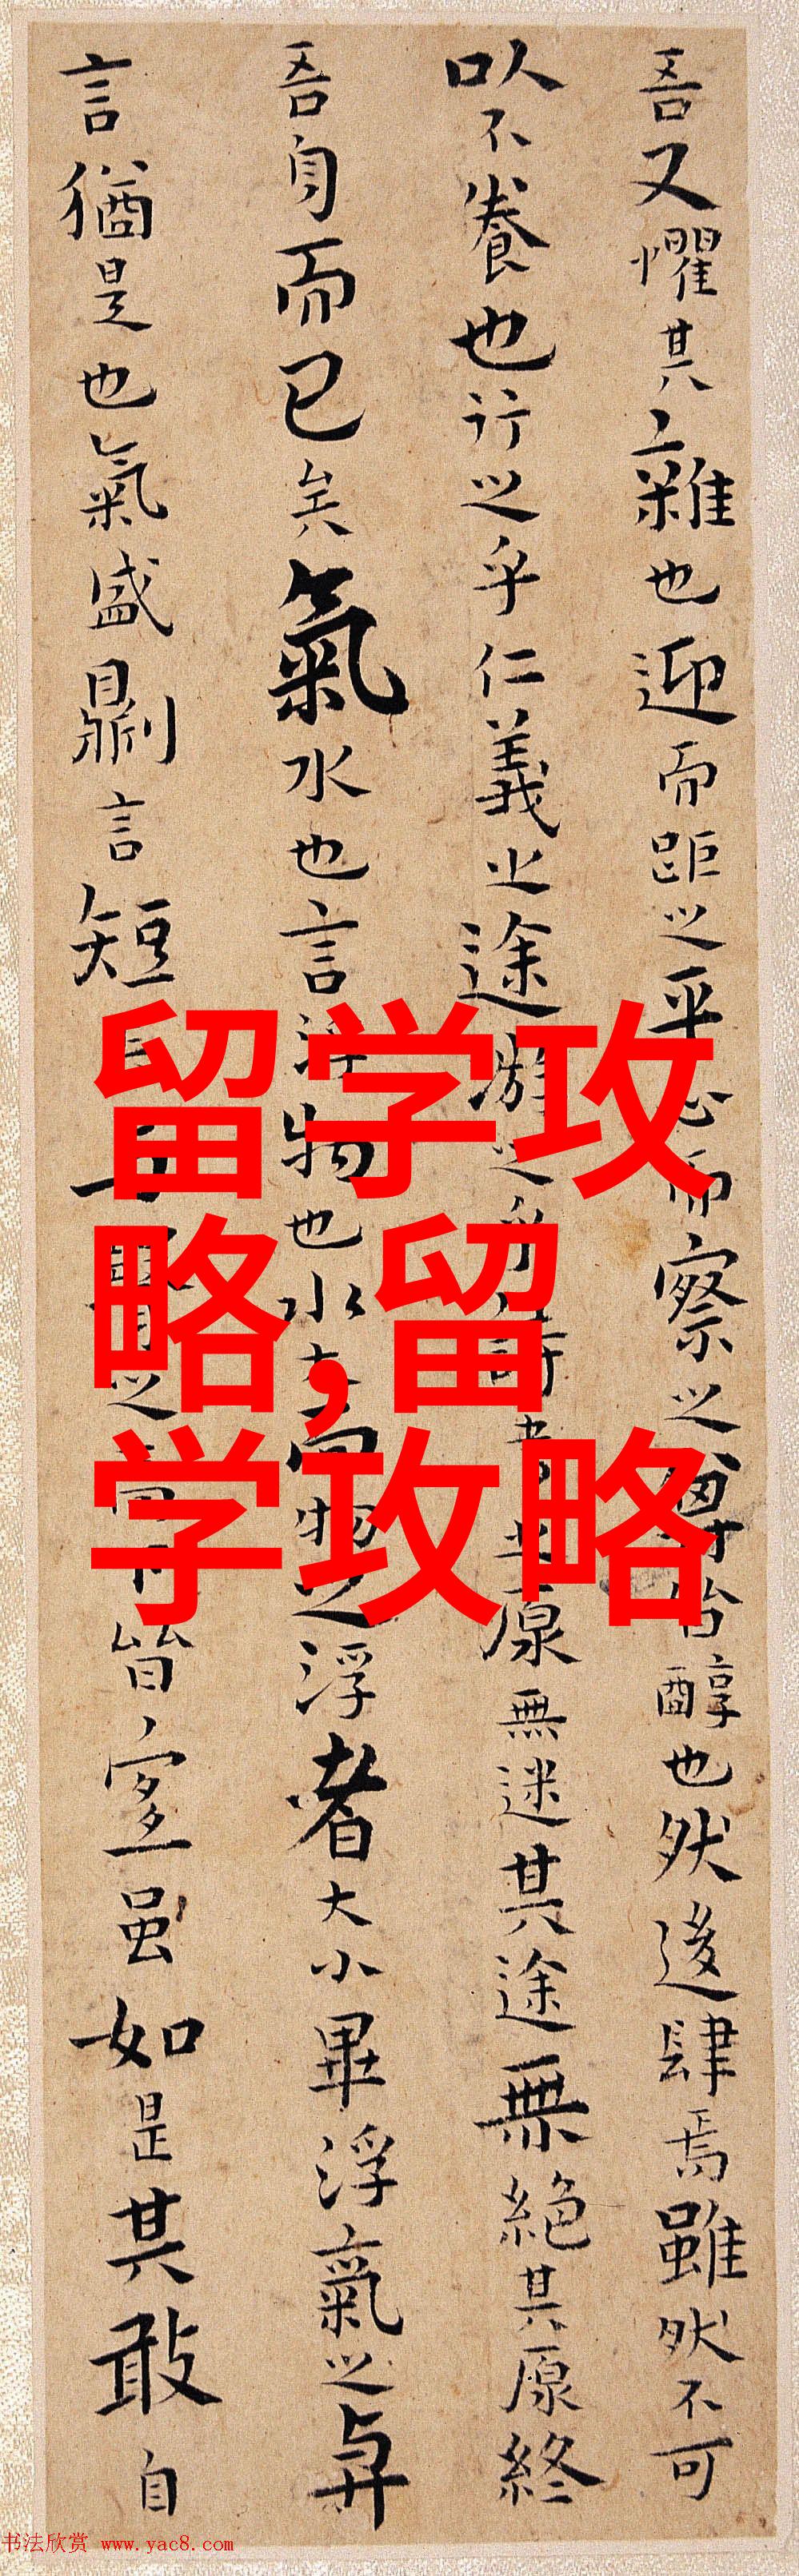 吾又懼其雜也迎而距之平心而察之皆醇也然後肆焉雖然不可
以不養也行之乎仁義之途游之乎詩書之原無迷其途無絕其原終
吾身而已矣氣水也言浮物也水大而物之浮者大小畢浮氣之與
言猶是也氣盛則言短長與聲之高下皆宜雖如是其敢自
留学攻
略,留
学攻略
书法欣赏 www.yac8.com